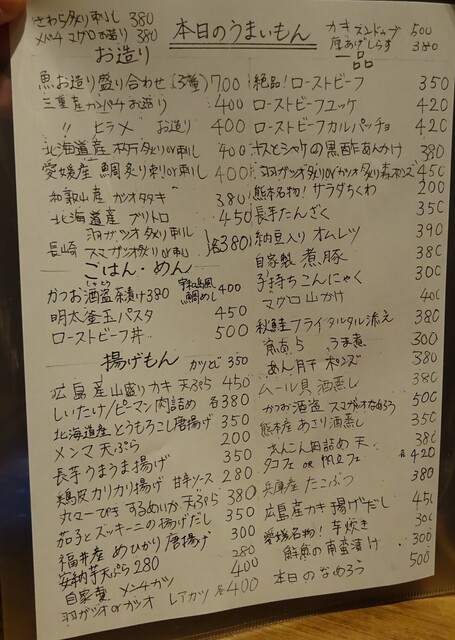 さわら炙り刺し 380
メバチマグロお造り 380
お造り
本日のうまいもん
カキスンドゥブ 500
厚あげしらす 380
一品
魚お造り盛り合わせ(3種) 700
三重産カンパチお造り 400
〃 ヒラメ お造り 400
北海道産 炙りor刺し 400
愛媛産 鯛炙り刺しor刺し 400
和歌山産 カツオタタキ 380
北海道産 ブリトロ 450
羽ガツオ炙り刺し
長崎 スマガツオ炙りor刺し 各380
ごはん・めん
かつお酒盗茶漬け 380
宇和島風鯛めし 400
明太釜玉パスタ 450
ローストビーフ丼 500
揚げもん
カツとじ 350
広島産山盛りカキ天ぷら 450
しいたけ/ピーマン肉詰め 各380
北海道産とうもろこし唐揚げ 350
メンマ天ぷら 200
長芋うまうま揚げ 350
鶏皮カリカリ揚げ 甘辛ソース 280
丸々一ぴきするめいか天ぷら 380
茄子とズッキーニの揚げだし 350
福井産めひかり唐揚げ 300
安納芋天ぷら 280
自家製 メンチカツ 400
羽ガツオorガツオ レアカツ 各400
絶品!ローストビーフ 350
ローストビーフユッケ 420
ローストビーフカルパッチョ 420
ナスとシャケの黒酢あんかけ 380
羽ガツオ炙りorカツオ炙りポンズ 450
熊本名物!サラダちくわ 200
長芋たんざく 350
納豆入りオムレツ 390
自家製 煮豚 380
子持ちこんにゃく 300
マグロ山かけ 400
秋鮭フライタルタル添え 380
魚あら うま煮 300
あん肝ポンズ 380
ムール貝酒蒸し 380
かつお酒盗 スマガツオなめろう 500
熊本産あさり酒蒸し 350
れんこん肉詰め天 380
タコフェ or 肉フェ 各420
兵庫産 たこぶつ 380
広島産カキ揚げだし 450
愛媛名物!芋炊き 300
鮮魚の南蛮漬け 300
本日のなめろう 500